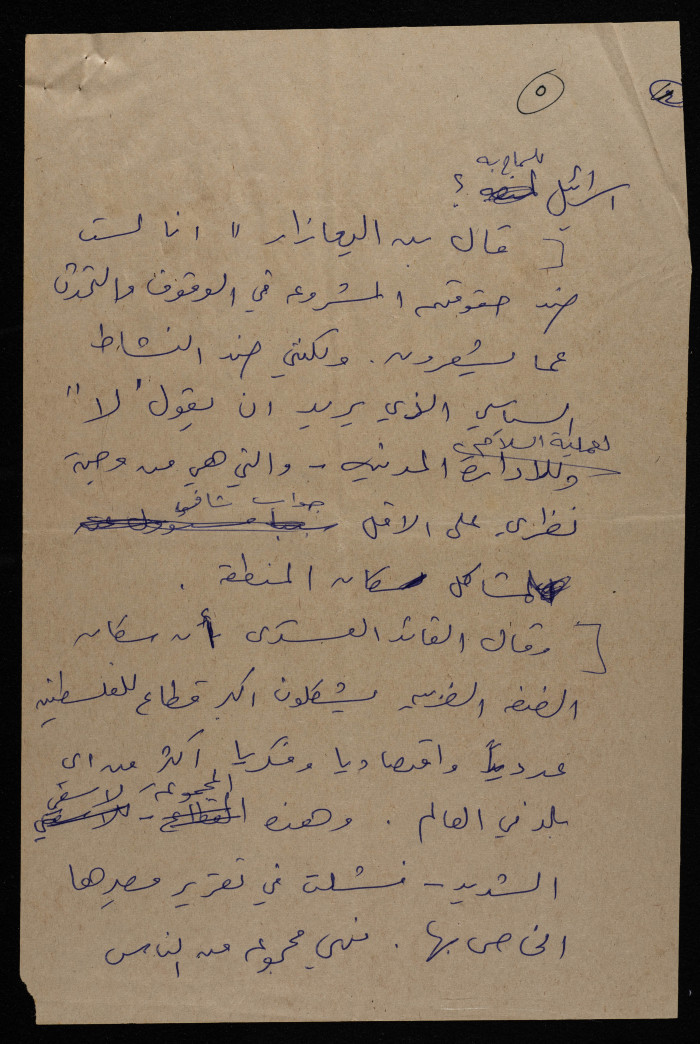 ٥
للمجابهة
اسرائيل ؟
[ قال بن اليعازار " انا لست
ضد حقوقهم المشروعه في الوقوف والتحدث
عما يشعرون. ولكنني ضد النشاط
السياسي الذي يريد ان يقول "لا"
لعملية السلام
وللادارة المدنيه - والتي هي من وجهة
جواب شافي
نظري على الاقل
لمشاكل سكان المنطقة .
[ وقال القائد العسكري أن سكان
الضفه الغربيه يشكلون اكبر قطاع للفلسطينيين
عدديا واقتصاديا وفكريا اكثر من اى
المجموعة - لاسفي
بلد في العالم . وهذه
الشديد - فشلت في تقرير مصيرها
الخاص بها . فهي مجموعه من الناس